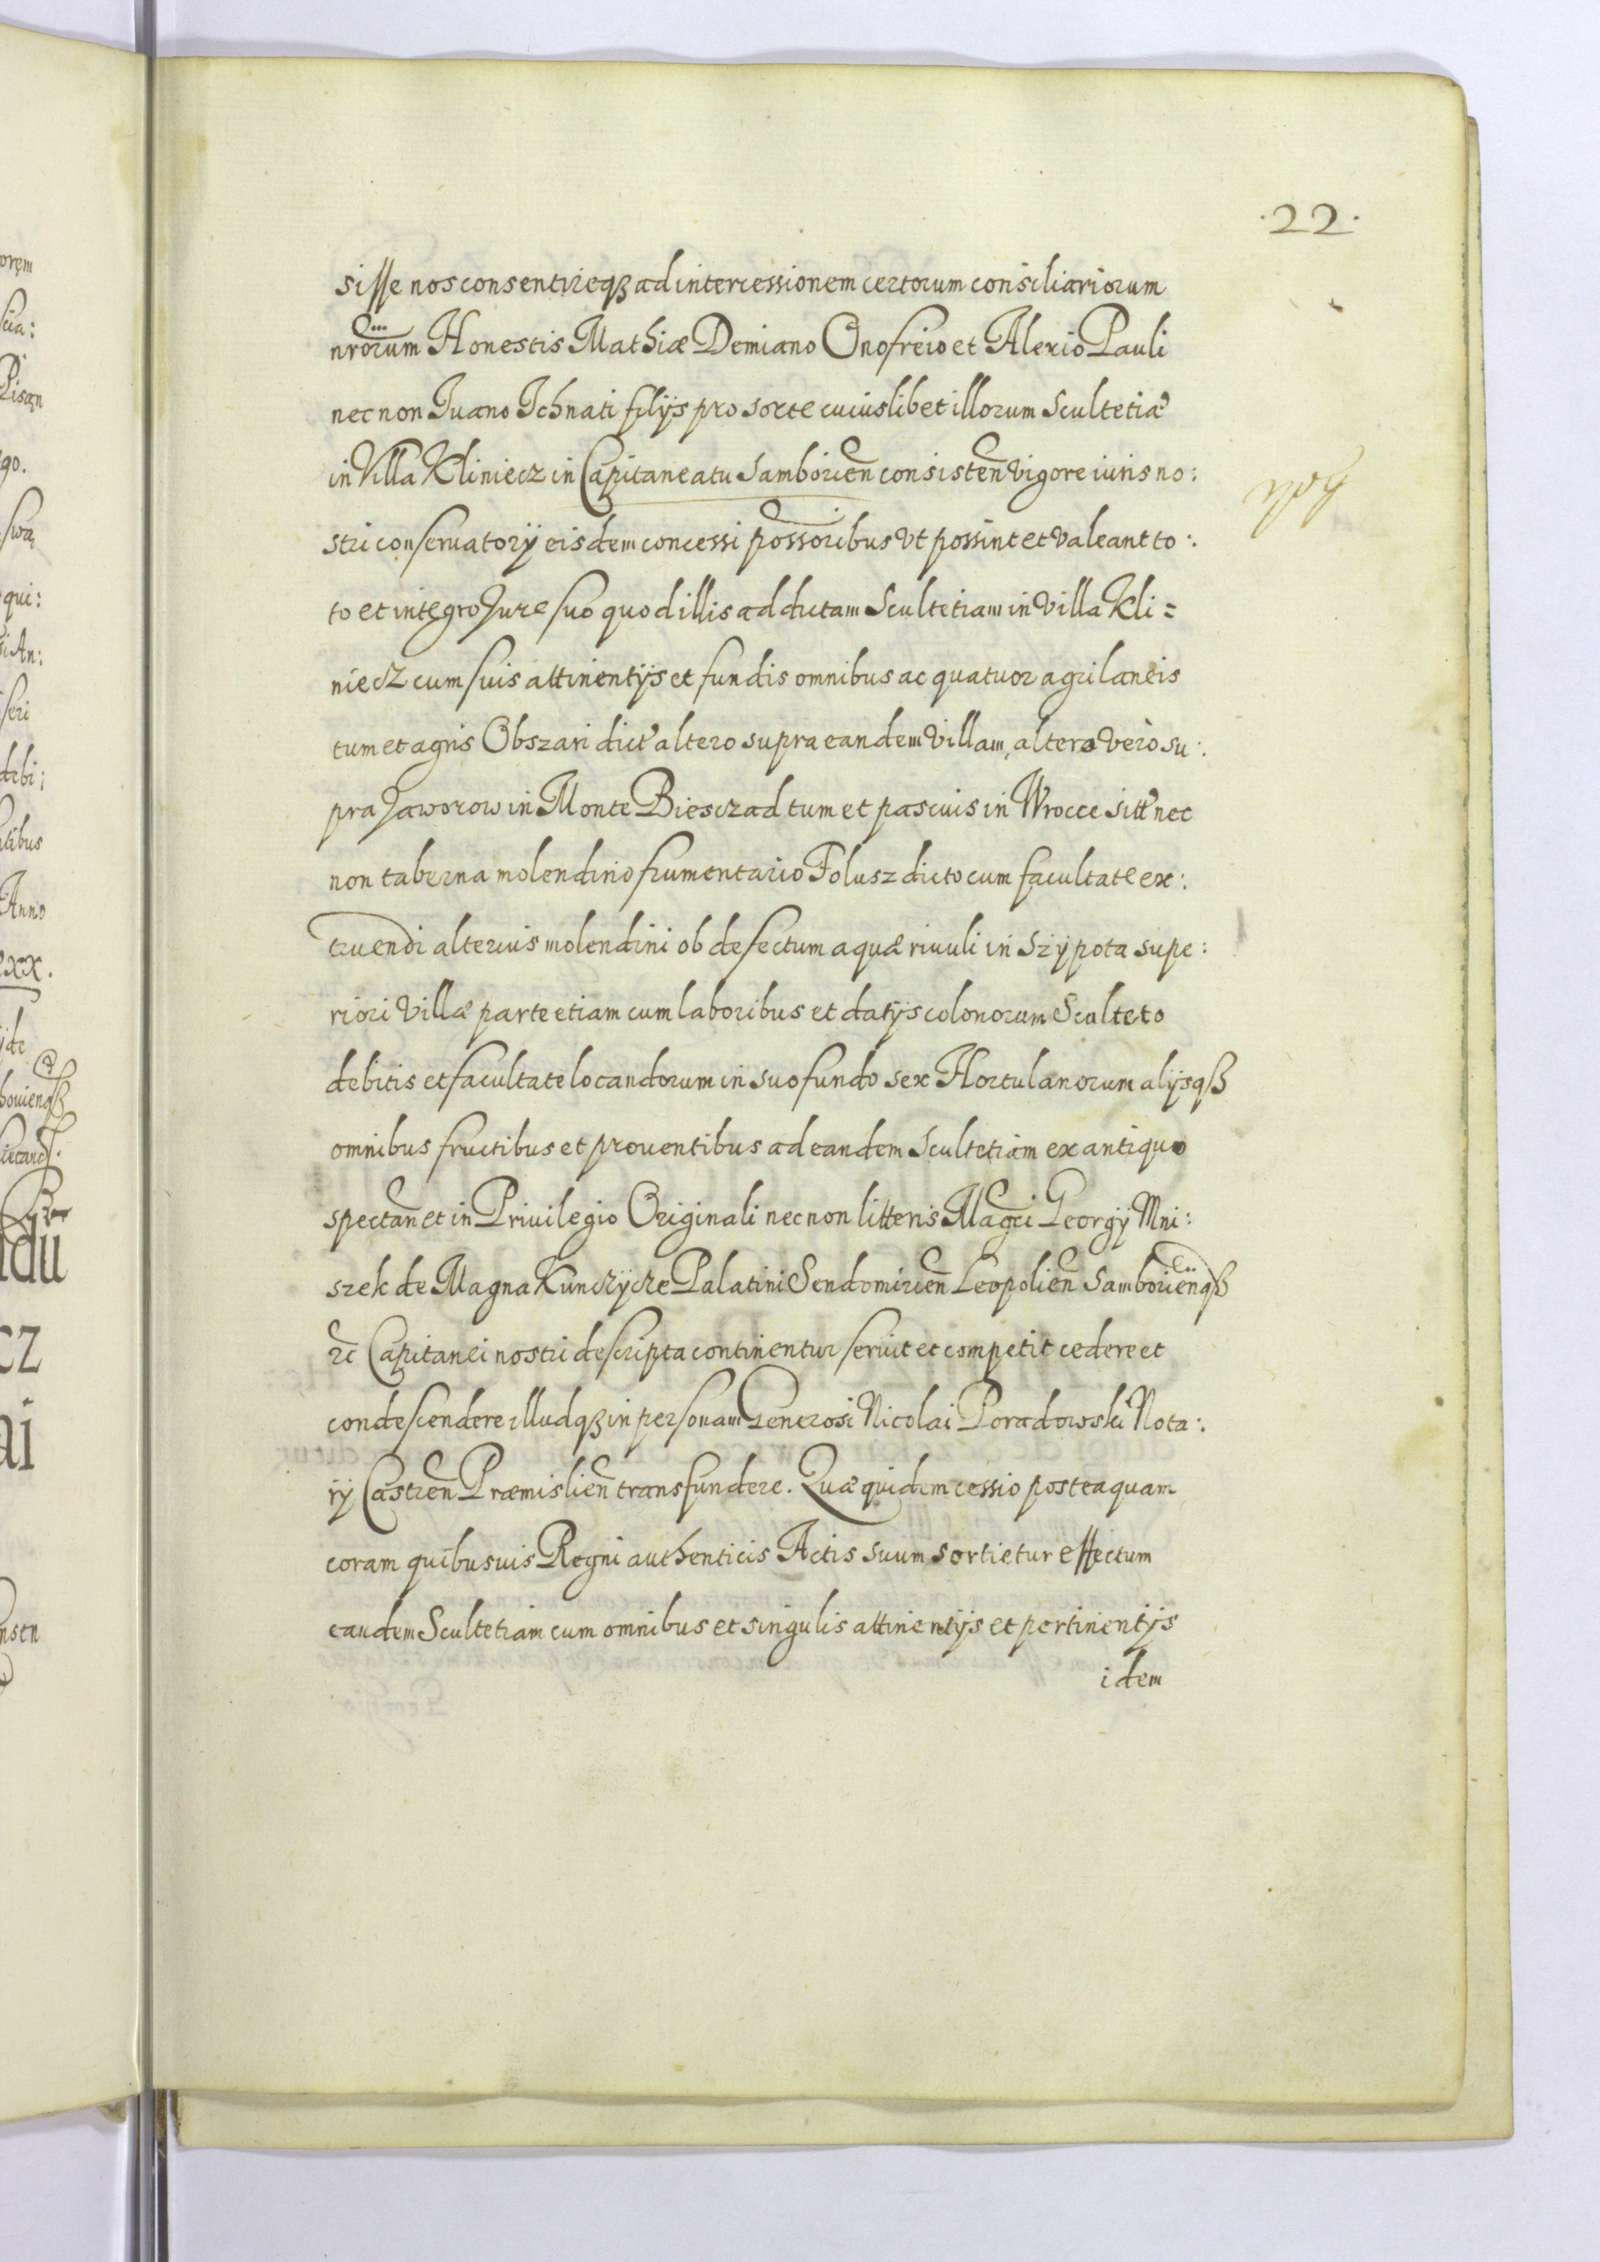 ·22·
sisse nos consentireqз ad intercessionem certorum consiliariorum
nrorum Honestis Mathiæ Demiano Onofreio et Alexio Pauli
nec non Iuano Ichnati filijs pro sorte cuiuslibet illorum Scultetiæ
in Villa Kliniecz in Capitaneatu Samborien consisten vigore iuris no:
stri conseruatorij eisdem concessi possoribus vt possint et valeant to:
to et integro Jure suo quod illis ad dictam Scultetiam in villa Kli=
niecz cum suis attinentijs et fundis omnibus ac quatuor agri laneis
tum et agris Obszari dict altero supra eandem Villam, altero verò su:
pra Jaworow in Monte Biesczad tum et pascuis in Wrocce sitt nec
non taberna molendino frumentario Folusz dicto cum facultate ex:
truendi alterius molendini ob defectum aquæ riuuli in Szÿpota supe:
riori Villæ parte etiam cum laboribus et datijs colonorum Sculteto
debitis et facultate locandorum in suo fundo sex Hortulanorum alijsqз
omnibus fructibus et prouentibus ad eandem Scultetiam ex antiquo
spectan et in Priuilegio Originali nec non litteris Magci Georgij Mni:
szek de Magna Kunczÿcze Palatini Sendomirien Leopolien Samborienqз
&c Capitanei nostri descripta continentur seruit et competit cedere et
condescendere illudqз in personam Generosi Nicolai Poradowski Nota:
rij Castren Præmislien transfundere. Quæ quidem cessio posteaquam
coram quibusuis Regni authenticis Actis suum sortietur effectum
eandem Scultetiam cum omnibus et singulis attinentijs et pertinentijs
idem